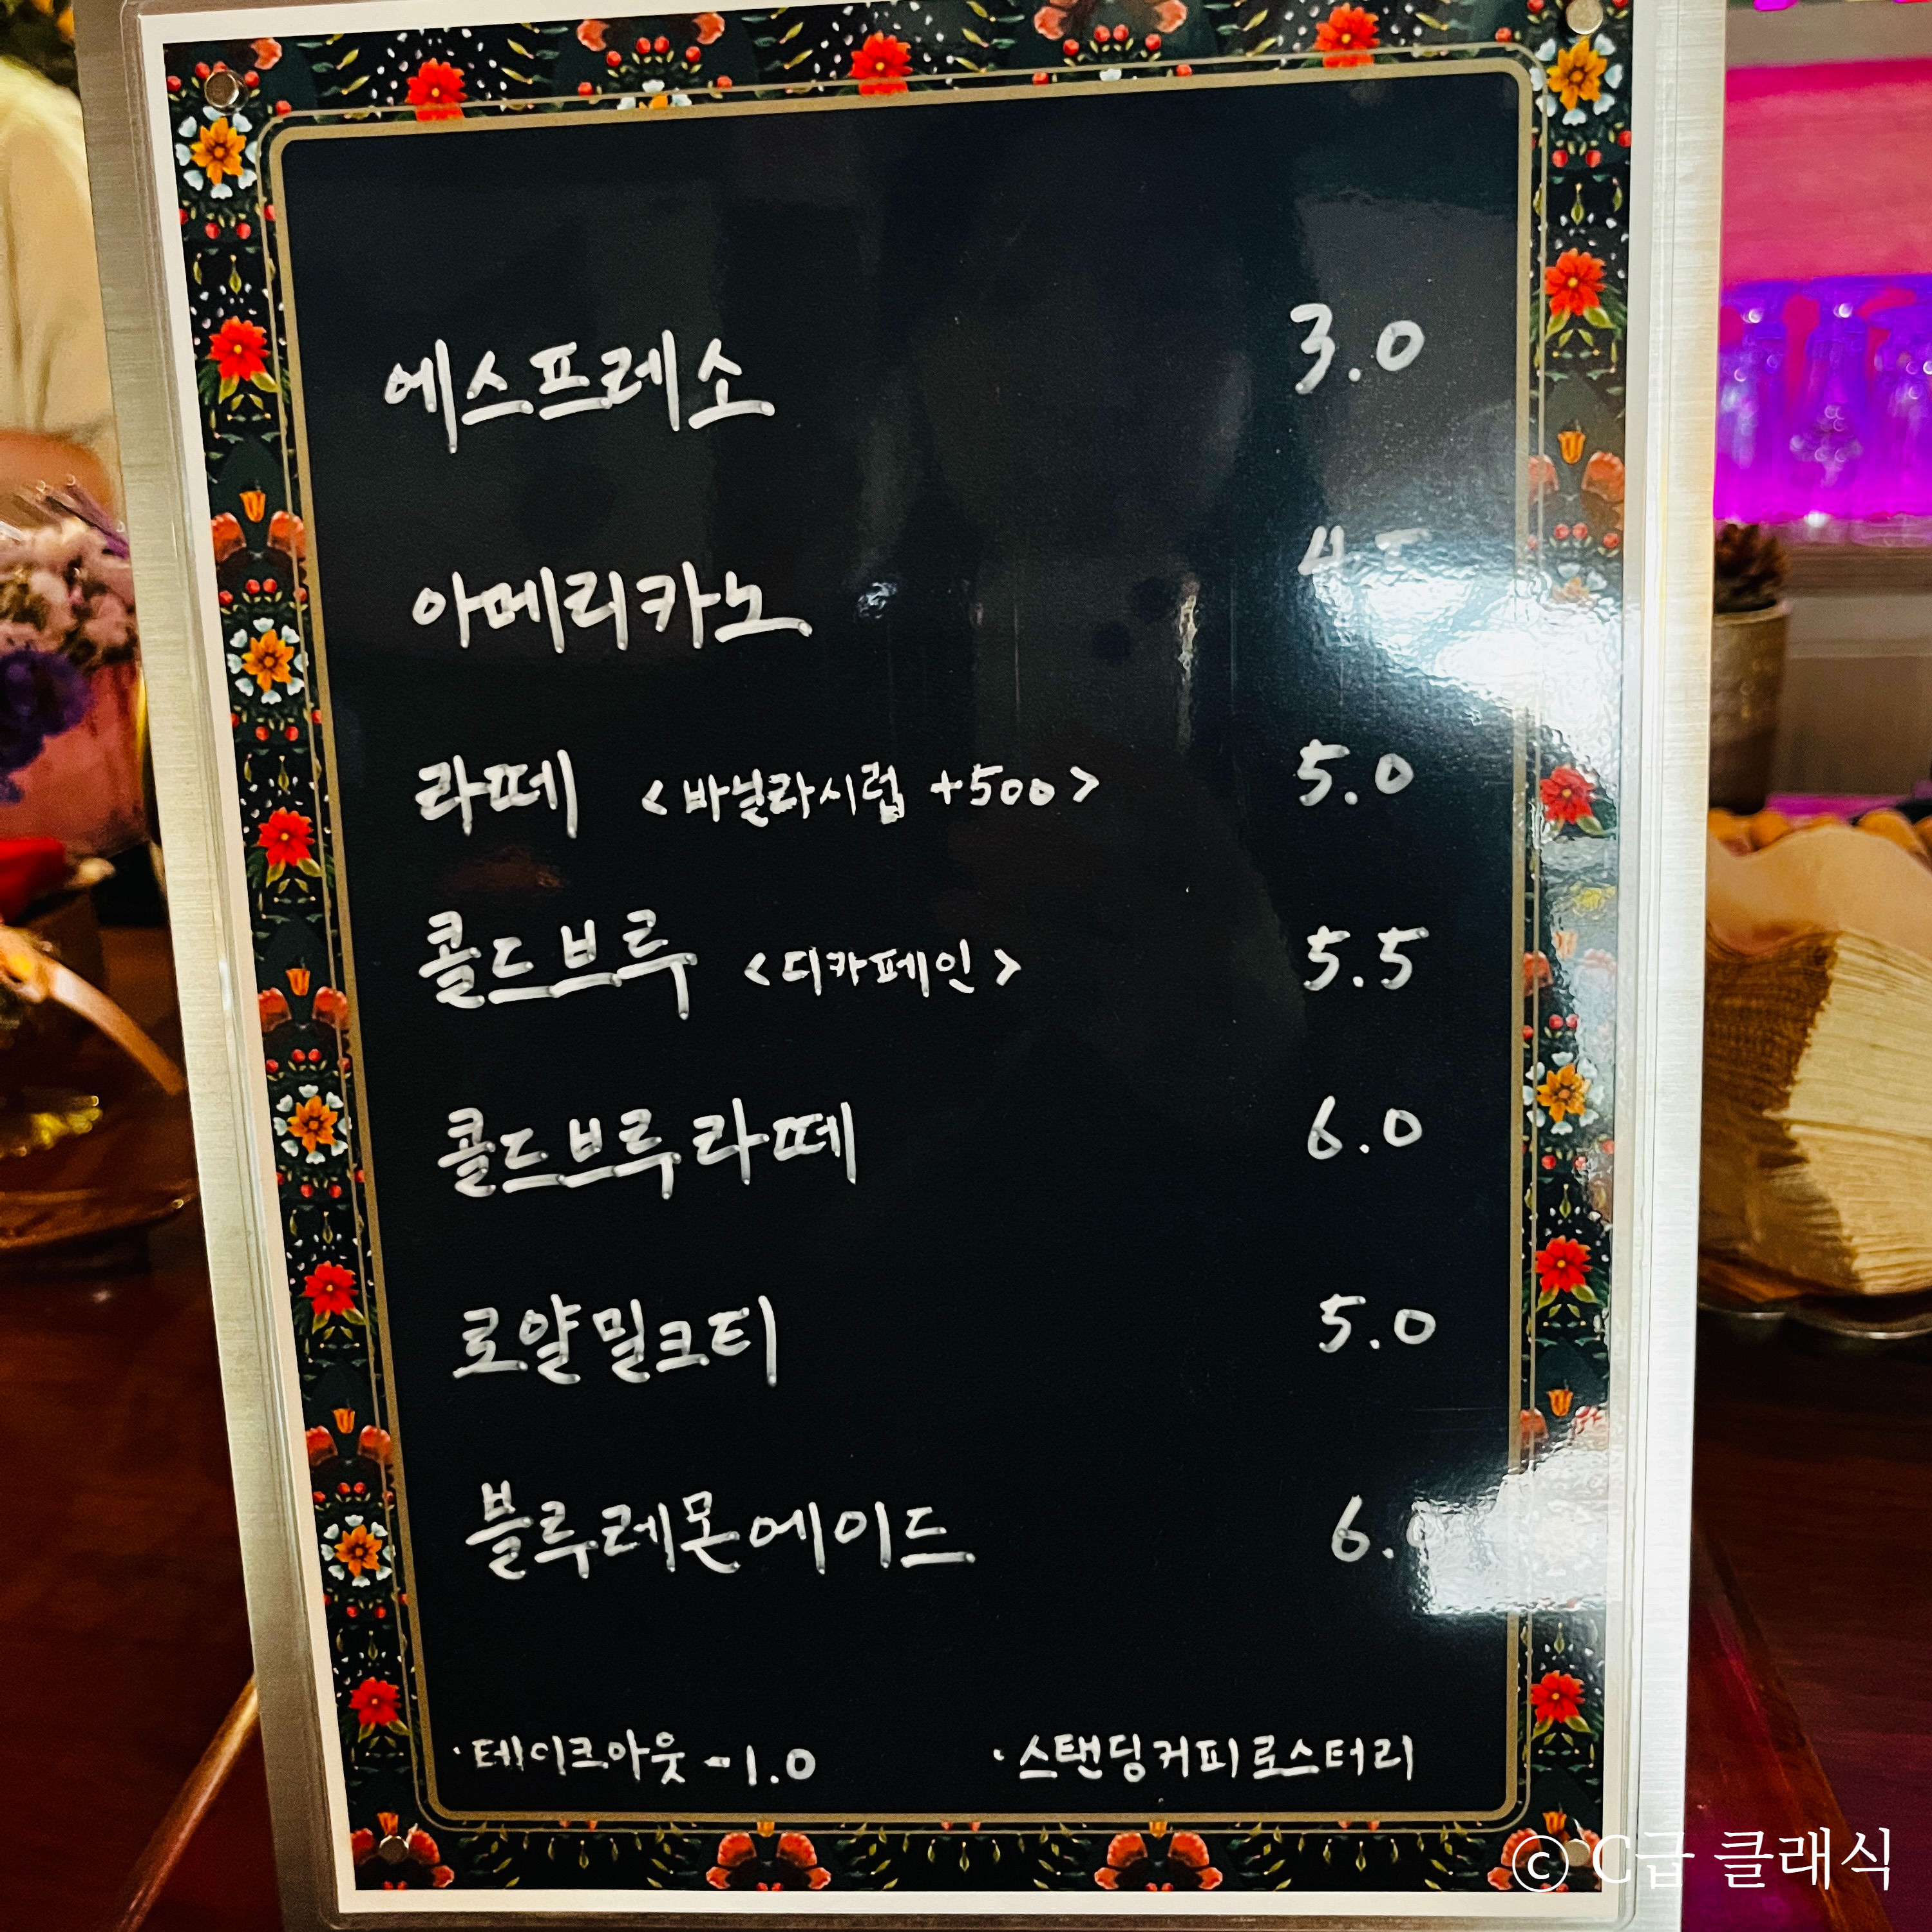 에스프레소 3.0
아메리카노
라떼 <바닐라시럽 +500> 5.0
콜드브루 <디카페인> 5.5
콜드브루라떼 6.0
로얄밀크티 5.0
블루레몬에이드 6.0
·테이크아웃 -1.0 ·스탠딩커피로스터리
ⓒ C급 클래식